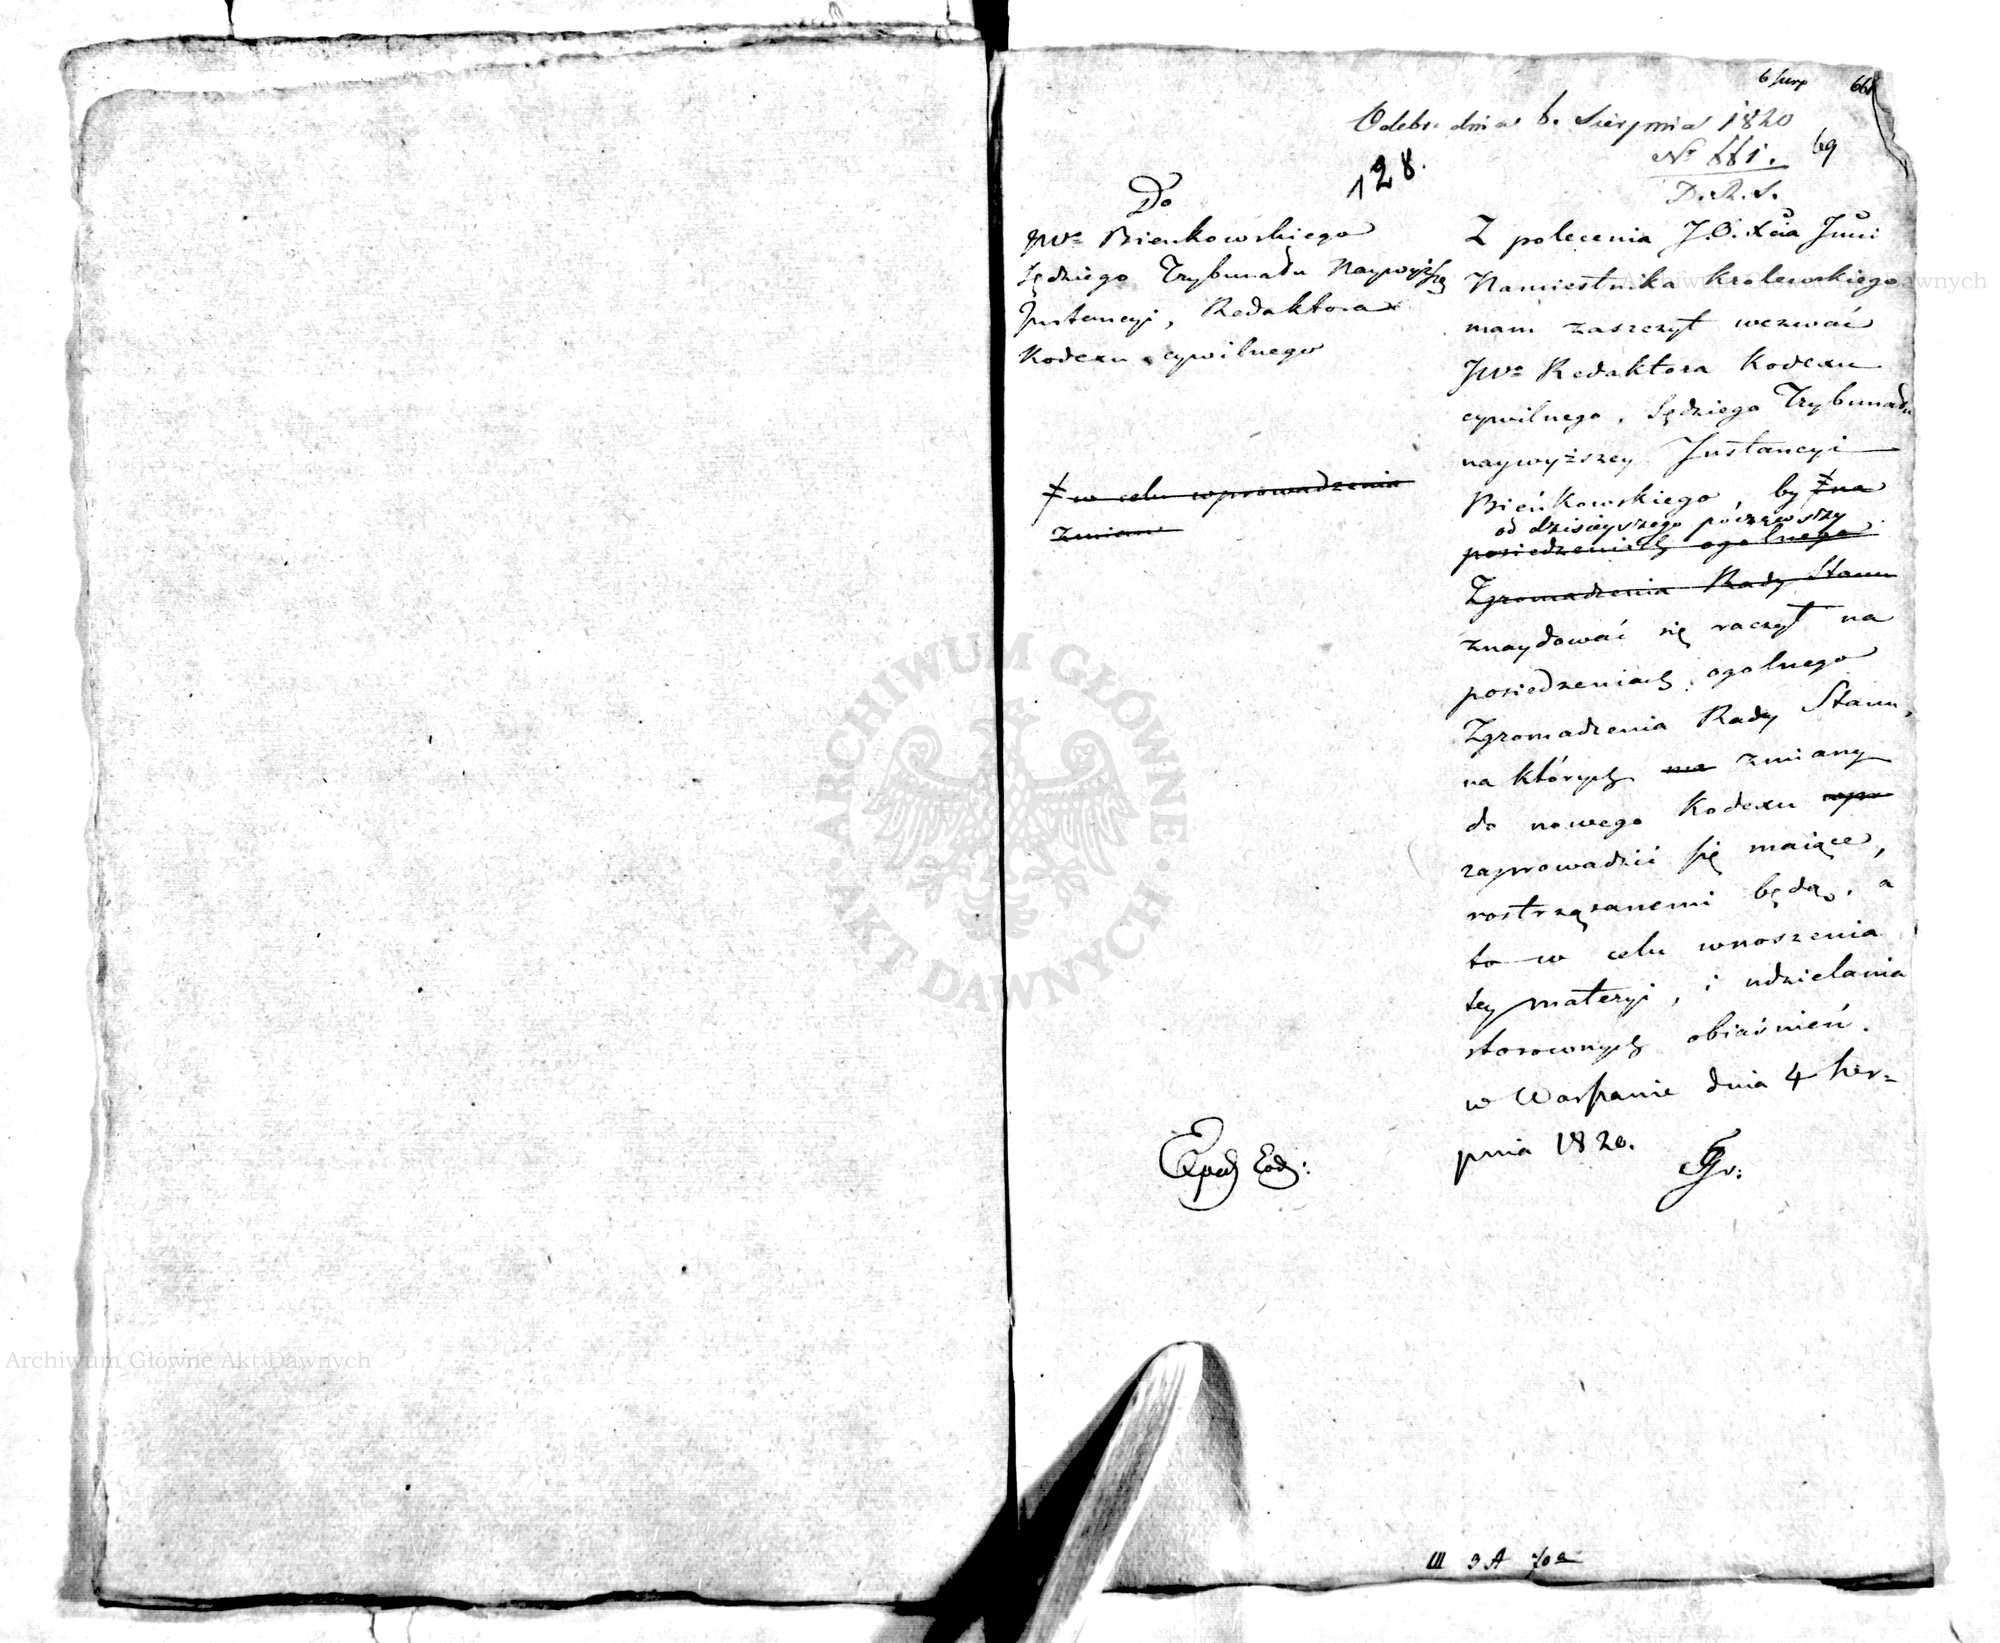 6 sierp
668
Odebr. dnia 6. Sierpnia 1820
Nº 881.
69
D.R.S.
128.
Do
JWº Bieńkowskiego
Sędziego Trybunału Naywyższey
Instancyi, Redaktora
Kodexu cywilnego
Z polecenia J.O. Xcia Jmci
Namiestnika Krolewskiego
mam zaszczyt wezwać
JWº Redaktora Kodexu
cywilnego, Sędziego Trybunału
naywyższey Instancyi
Bieńkowskiego, by ‡ na
od dzisieyszego począwszy
posiedzeniach ogolnego
Zgromadzenia Rady Stanu
‡ w celu wprowadzenia
zmian
znaydować się raczył na
posiedzeniach ogolnego
Zgromadzenia Rady Stanu,
na których na zmiany
do nowego Kodexu wpr
zaprowadzić się maiące,
rostrząsanemi będą, a
to w celu wnoszenia
tey materyi, i udzielania
stosownych obiaśnień.
w Warszawie dnia 4 Sier=
pnia 1820.
Exped Eod:
III 3 A 70a
ARCHIWUM GŁÓWNE
AKT DAWNYCH
Archiwum Główne Akt Dawnych
Archiwum Główne Akt Dawnych